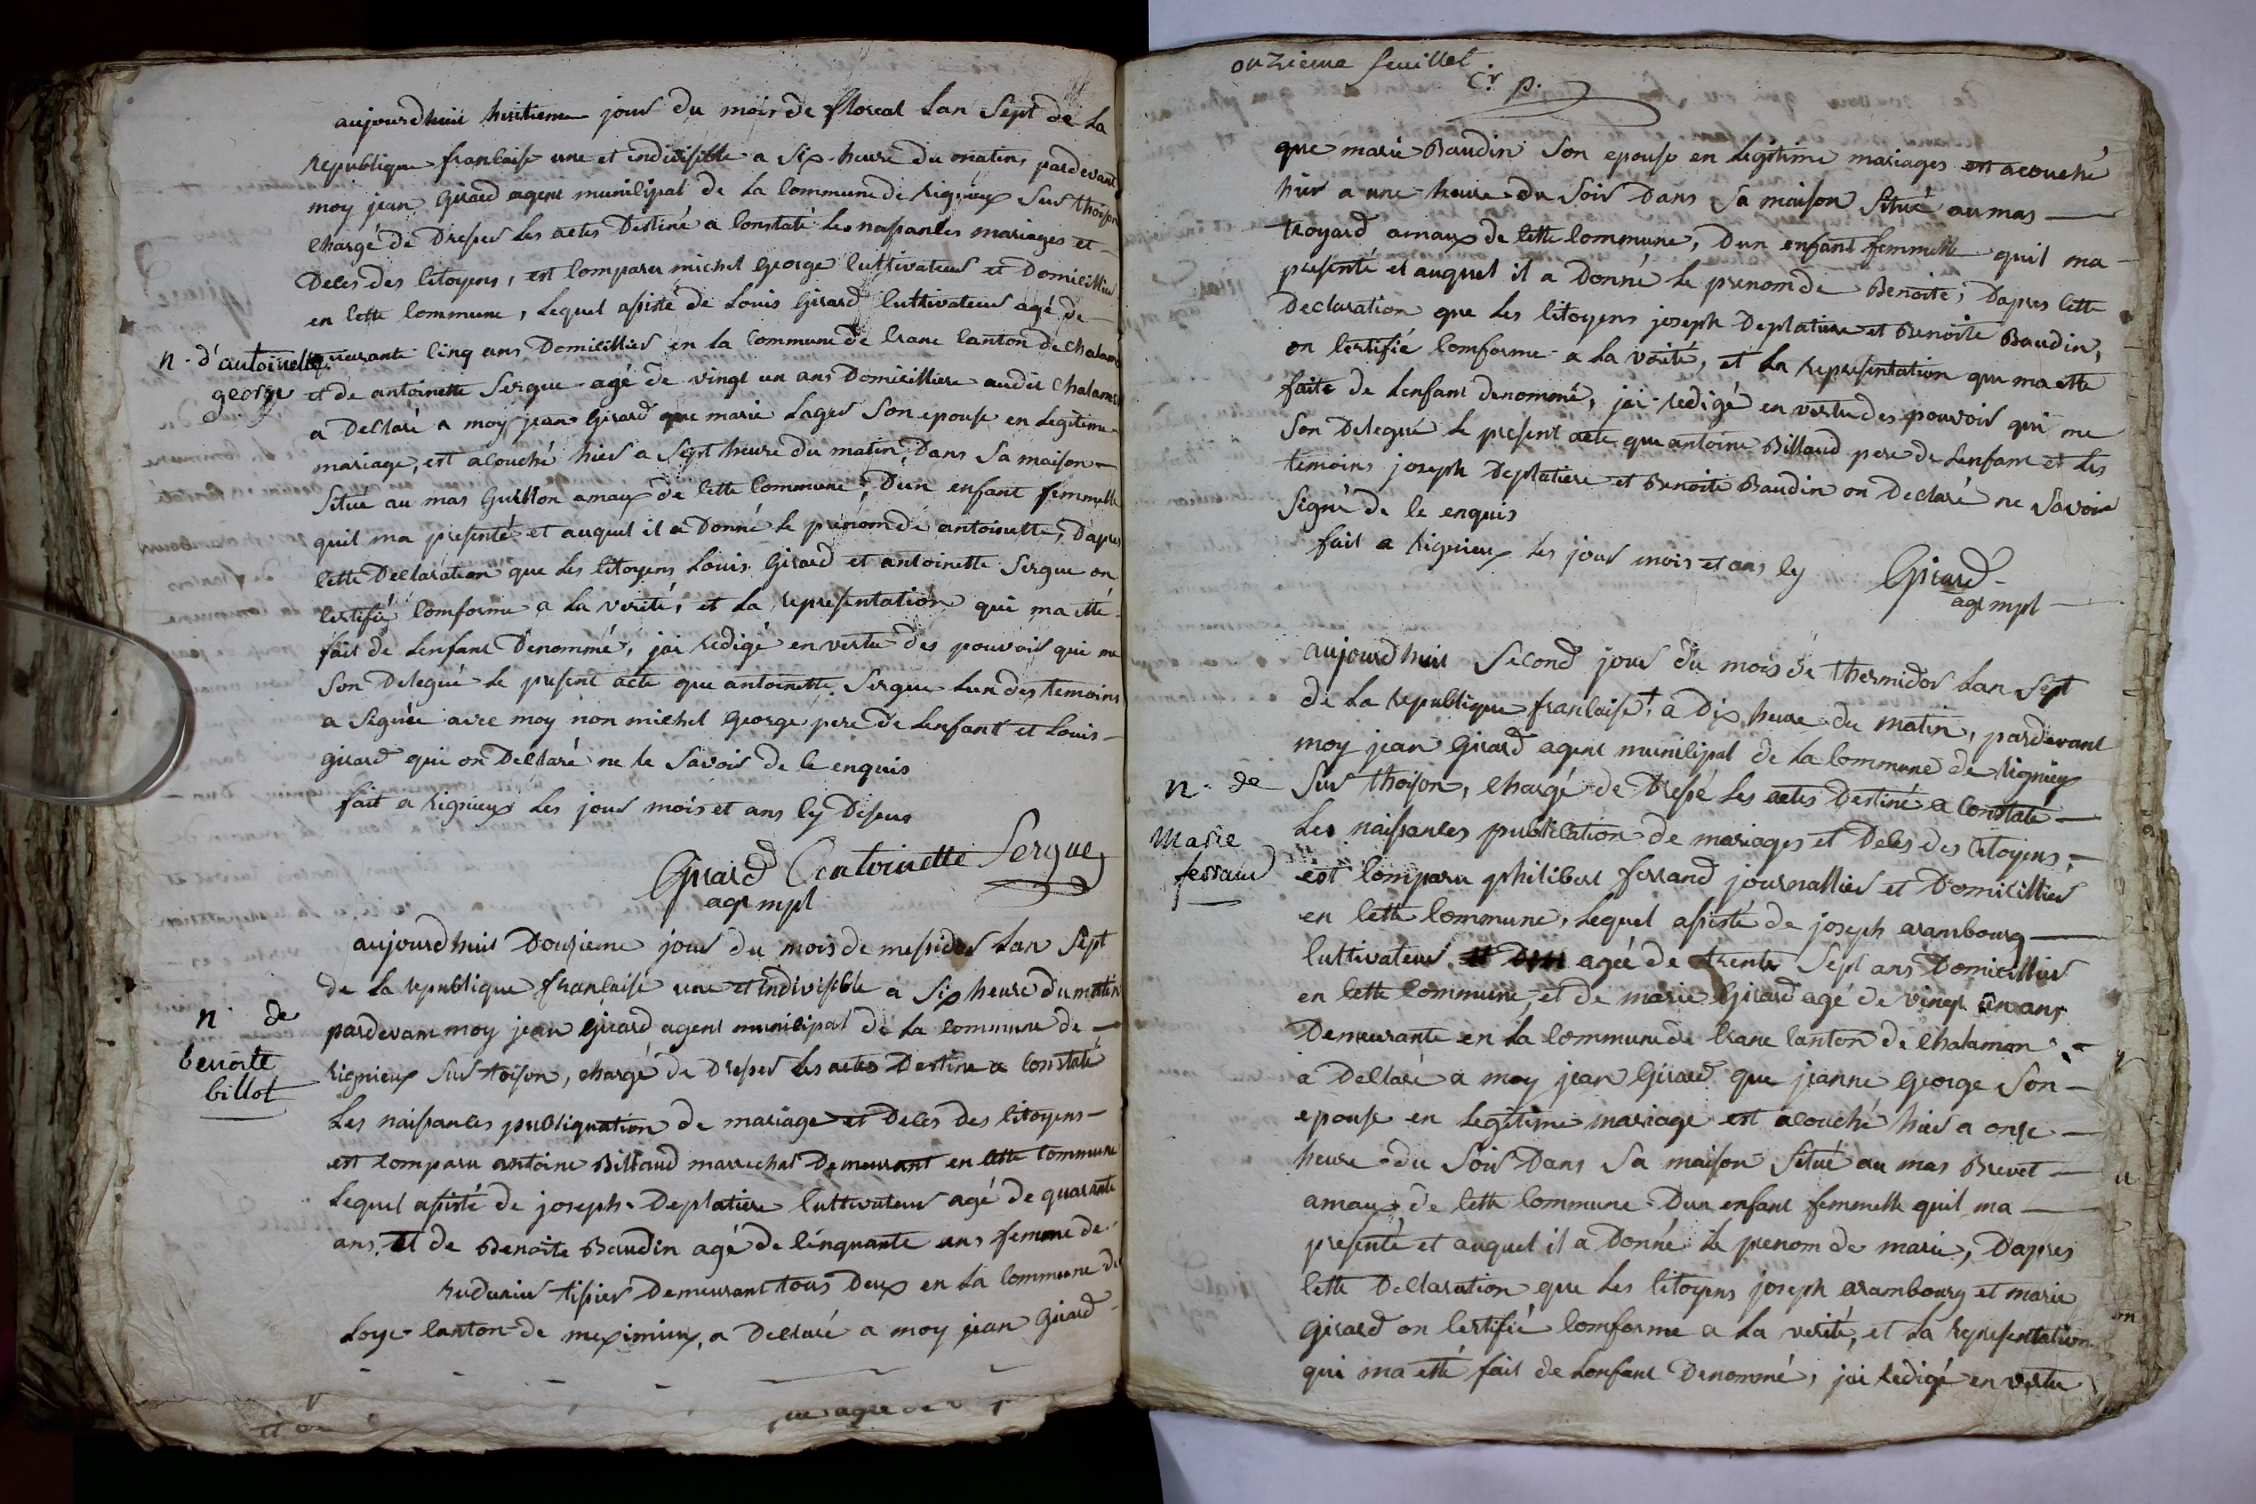 aujourdhuis huitieme jour du mois de floreal Lan Sept de La
republique francaise une et indivisible a Six heure du matin, pardevant
moy jean Girard agent municipal de La Commune de Rignieux Sur thoison
chargé de Dresser Les actes Destiné a Constaté Les naissances mariages et
Deces des citoyens, est comparu michel George cultivateur et Domicillier
en cette Commune, Lequel assisté de Louis Girard cultivateur agé de
n. d'antoinette
george
quarante cinq ans Domicillier en La Commune de Crane canton de chalamon
et de antoinette Sergue agé de vingt un ans Domicilliere audit Chalamon
a Declaré a moy jean Girard que marie Lager Son epouse en Legitime
mariage, est acouché hier a Sept heure du matin, Dans Sa maison
Situé au mas Guillon amaux de cette Commune, Dun enfant femmelle
quil ma presenté et auquel il a Donné Le prénom de antoinette, Dapres
cette Declaration que Les citoyens Louis Girard et antoinette Sergue on
certifié comforme a La verité, et La representation qui ma etté
fait de Lenfant Denommé, jai redigé en vertu des pouvoir qui me
Son Delegué Le present acte que antoinette Sergue Lun des temoins
a Signée avec moy non michel George pere de Lenfant et Louis
girard qui on Declaré ne le Savoir de ce enquis
fait a Rignieux Les jour mois et ans cy Dessus
Girard antoinette Sergue
agt mpl
aujourdhuis Douzieme jour du mois de messidor Lan Sept
de La republique francaise une et indivisible a Six heure du matin
n. de
benoite
billot
pardevant moy jean Girard agent municipal de La commune de
Rignieux Sur toison, chargé de Dresser Les actes Destiné a Constaté
Les naissances publiquation de mariage et Deces des citoyens
est comparu antoine Billaud marrechal Demeurant en cette Commune
Lequel assisté de joseph Deplatiere cultivateur agé de quarante
ans, et de Benoite Baudin agé de cinquante ans femme de
tissier Demeurant tous Deux en La Commune de
Loye canton de meximieux, a Declaré a moy jean Girard
onzieme feuillet
Cr. P.
que marie Baudin Son epouse en Legitime mariages est acouché
hier a une heure du Soir Dans Sa maison Situé au mas
troyard amaux de cette Commune, Dun enfant femmelle quil ma
presenté et auquel il a Donné Le prenom de Benoite, Dapres cette
Declaration que Les citoyens joseph Deplatiere et Benoite Baudin,
on certifié comforme a La verité, et La representation qui ma etté
faite de Lenfant denommé, jai redigé en vertu des pouvoir qui me
Son Delegué Le present acte que antoine Billaud pere de Lenfant et Les
temoins joseph Deplatiere et Benoite Baudin on Declaré ne Savoir
Signé de ce enquis
fait a Rignieux Les jour mois et ans cy
Girard
agt mpl
aujourdhuis Second jour du mois de thermidor Lan Sept
de La republique francaise a Dix heure du matin, pardevant
moy jean Girard agent municipal de La Commune de Rignieux
n. de
Marie
ferrand
Sur thoison, chargé de Dressé Les actes Destiné a Constaté
Les naissances publication de mariages et Deces des citoyens,
est comparu philibert ferrand journallier et Domicillier
en cette Commune, Lequel assisté de joseph arambourg
cultivateur agée de trente Sept ans Domicillier
en cette Commune, et de marie Girard agé de vingt un ans
Demeurante en La Commune de Crane canton de Chalamon
a Declaré a moy jean Girard que jeanne George Son
epouse en Legitime mariage est acouché hier a onze
heure du Soir Dans Sa maison Situé au mas Brevet
amaux de cette Commune Dun enfant femmelle quil ma
presenté et auquel il a Donné Le prenom de marie, Dapres
cette Declaration que Les citoyens joseph arambourg et marie
Girard on certifié comforme a La verité, et La representation
qui ma etté fait de Lenfant Denommé, jai redigé en vertu